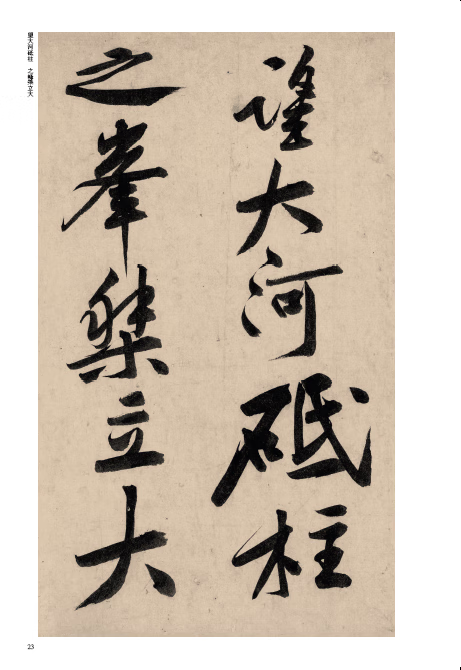 望大河砥柱
之峯桀立大
望大河砥柱　之峰桀立大
23